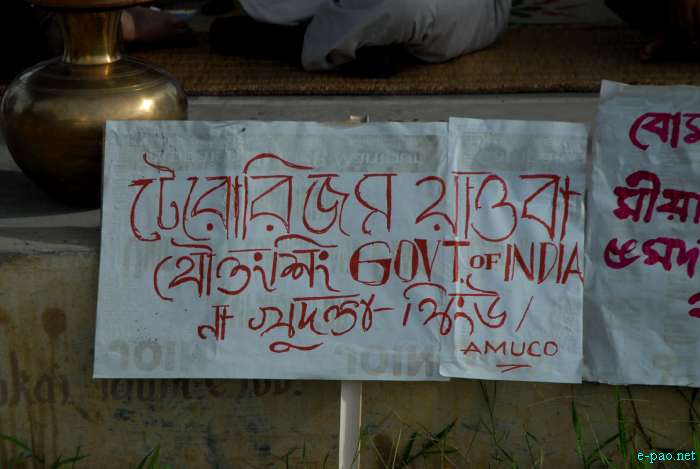 টেরোরিজম য়াওবা
থৌওংশিং GOVT. OF INDIA
না খুদক্তা থিংউ /
AMUCO
বোম
মীয়া
e-pao.net